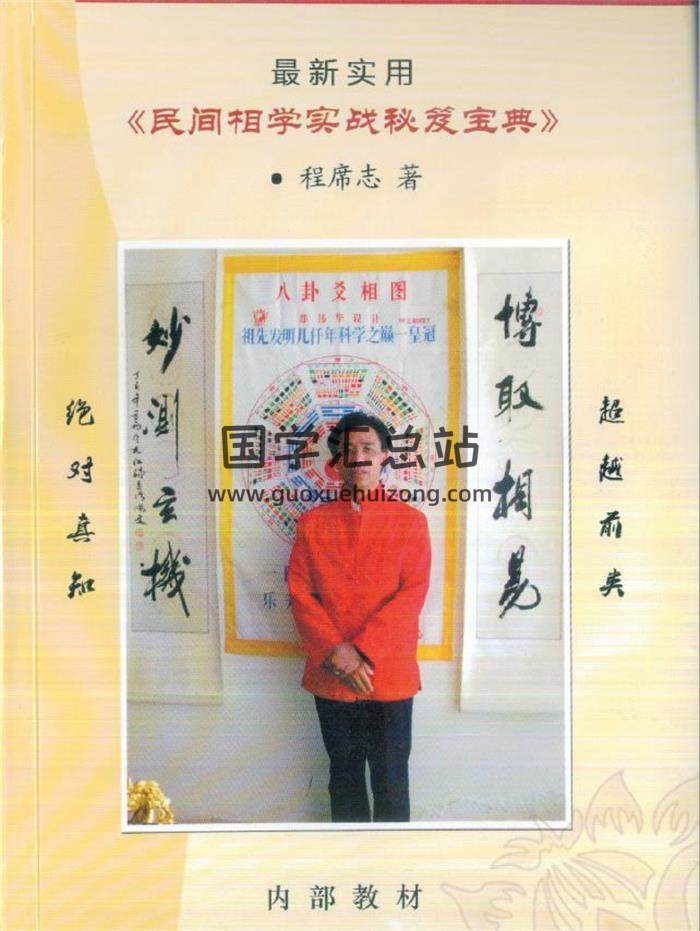 最新实用
《民间相学实战秘笈宝典》
• 程席志 著
超越前类
绝对真知
八卦爻相图
祖先发明几仟年科学之巅一皇冠
博取相易
妙测玄机
国学汇总站
www.guoxuehuizong.com
内部教材